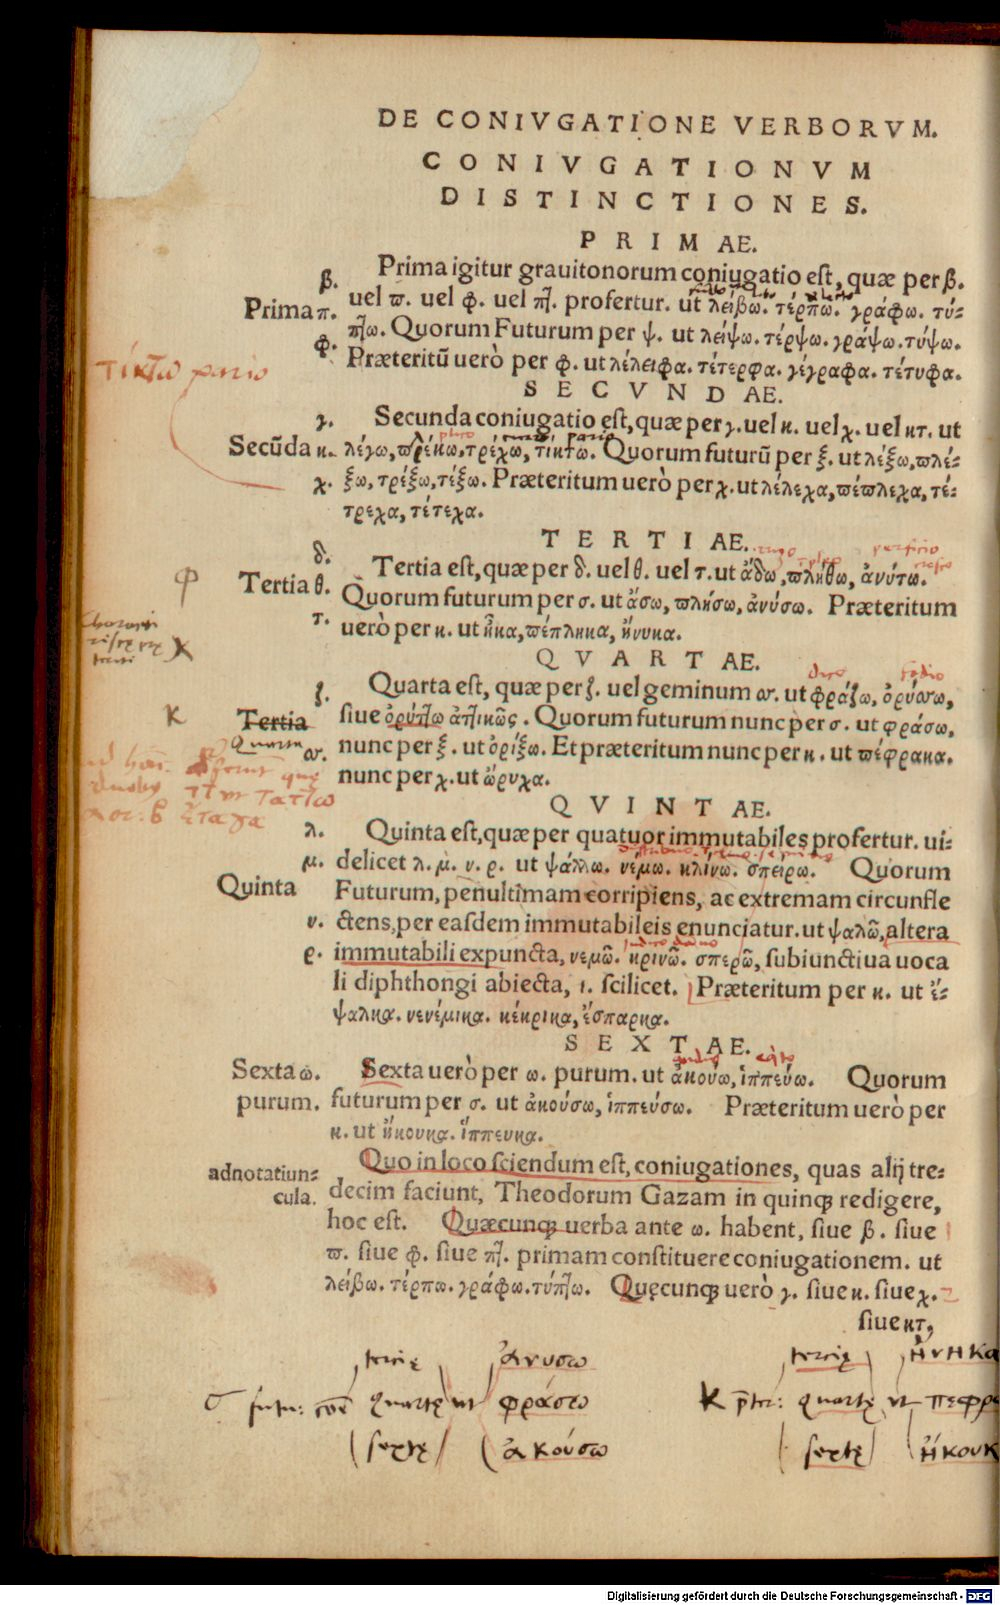 DE CONIVGATIONE VERBORVM.
CONIVGATIONVM
DISTINCTIONES.
PRIMAE.
β.
Prima igitur grauitonorum coniugatio est, quæ per β.
Prima π.
uel ϖ. uel φ. uel πτ. profertur. ut λείβω. τέρπω. γράφω. τύ-
φ.
πτω. Quorum Futurum per ψ. ut λείψω. τέρψω. γράψω. τύψω.
τίκτω pario
Præteritū uerò per φ. ut λέλειφα. τέτερφα. γέγραφα. τέτυφα.
SECVNDAE.
γ.
Secunda coniugatio est, quæ per γ. uel κ. uel χ. uel κτ. ut
Secūda κ.
λέγω, ϖλέκω, τρέχω, τίκτω. Quorum futurū per ξ. ut λέξω, ϖλέ-
χ.
ξω, τρέξω, τέξω. Præteritum uerò per χ. ut λέλεχα, ϖέϖλεχα, τέ-
τρεχα, τέτεχα.
TERTIAE.
perficio
δ.
Tertia est, quæ per δ. uel θ. uel τ. ut ᾄδω, ϖλήθω, ἀνύτω.
φ
Tertia θ.
Quorum futurum per σ. ut ᾄσω, ϖλήσω, ἀνύσω. Præteritum
τ.
uerò per κ. ut ἧκα, ϖέπληκα, ἤνυκα.
χ
QVARTAE.
fodio
ζ.
Quarta est, quæ per ζ. uel geminum σσ. ut φράζω, ὀρύσσω,
κ
Tertia
siue ὀρύττω ἀττικῶς. Quorum futurum nunc per σ. ut φράσω,
Quarta
σσ.
nunc per ξ. ut ὀρίξω. Et præteritum nunc per κ. ut ϖέφρακα.
nunc per χ. ut ὤρυχα.
QVINTAE.
λ.
Quinta est, quæ per quatuor immutabiles profertur. ui-
μ.
delicet λ. μ. ν. ρ. ut ψάλλω. νέμω. κλίνω. σπείρω. Quorum
Quinta
Futurum, penultimam corripiens, ac extremam circunfle
ν.
ctens, per easdem immutabileis enunciatur. ut ψαλῶ, altera
ρ.
immutabili expuncta, νεμῶ. κρινῶ. σπερῶ, subiunctiua uoca
li diphthongi abiecta, ι. scilicet. Præteritum per κ. ut ἔ-
ψαλκα. νενέμικα. κέκρικα, ἔσπαρκα.
SEXTAE.
Sexta ω.
Sexta uerò per ω. purum. ut ἀκούω, ἱππεύω. Quorum
purum.
futurum per σ. ut ἀκούσω, ἱππεύσω. Præteritum uerò per
κ. ut ἤκουκα. ἵππευκα.
adnotatiun-
Quo in loco sciendum est, coniugationes, quas alij tre-
cula.
decim faciunt, Theodorum Gazam in quinqꝫ redigere,
hoc est. Quæcunqꝫ uerba ante ω. habent, siue β. siue
ϖ. siue φ. siue πτ. primam constituere coniugationem. ut
λείβω. τέρπω. γράφω. τύπτω. Quęcunqꝫ uerò γ. siue κ. siue χ.
siue κτ,
tertię ἀνυσω tertię ἤνηκα
σ futu: quartę ut φράσω κ p̄ter: quartę ut πεφρα
sextę ἀκούσω sextę ἤκουκ
Digitalisierung gefördert durch die Deutsche Forschungsgemeinschaft - DFG